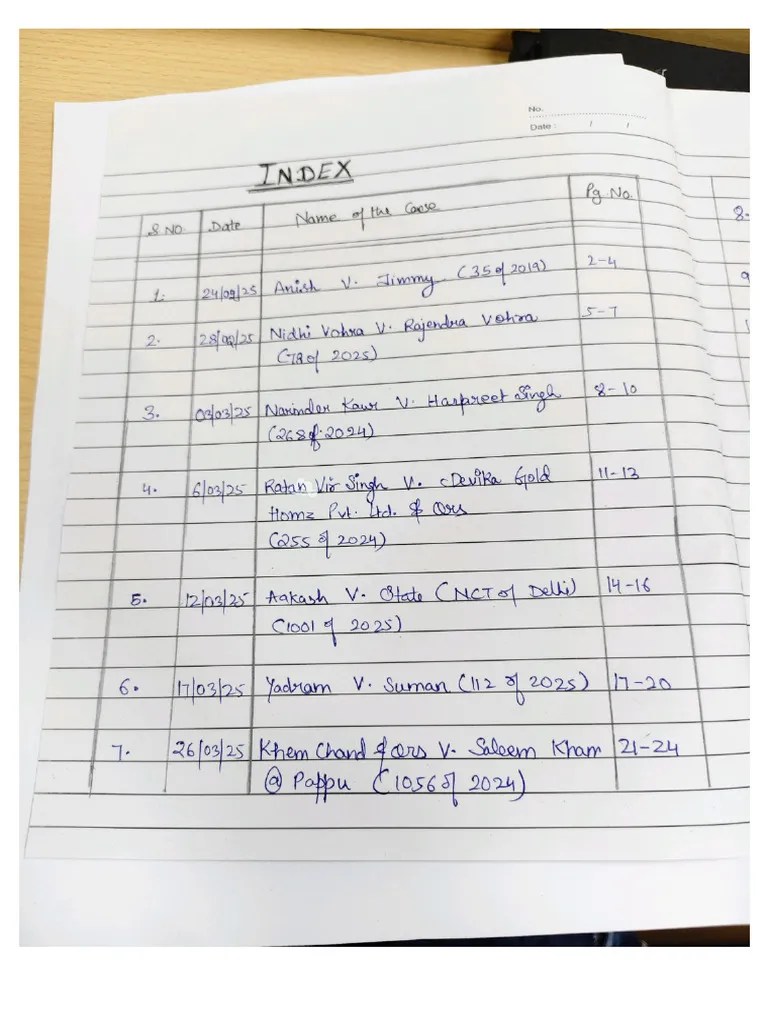 No.
Date : / /
INDEX
S.NO. Date Name of the Case Pg No.
1. 24/02/25 Anish V. Jimmy (35 of 2019) 2-4
2. 28/02/25 Nidhi Vohra V. Rajendra Vohra 5-7
(78 of 2025)
3. 03/03/25 Narinder Kaur V. Harpreet Singh 8-10
(268 of 2024)
4. 6/03/25 Ratan Vir Singh V. Devika Gold 11-13
Homz Pvt. Ltd. & Ors
(255 of 2024)
5. 12/03/25 Aakash V. State (NCT of Delhi) 14-16
(1001 of 2025)
6. 17/03/25 Yadram V. Suman (112 of 2025) 17-20
7. 26/03/25 Khem Chand & Ors V. Saleem Kham 21-24
@ Pappu (1056 of 2024)
8.
9